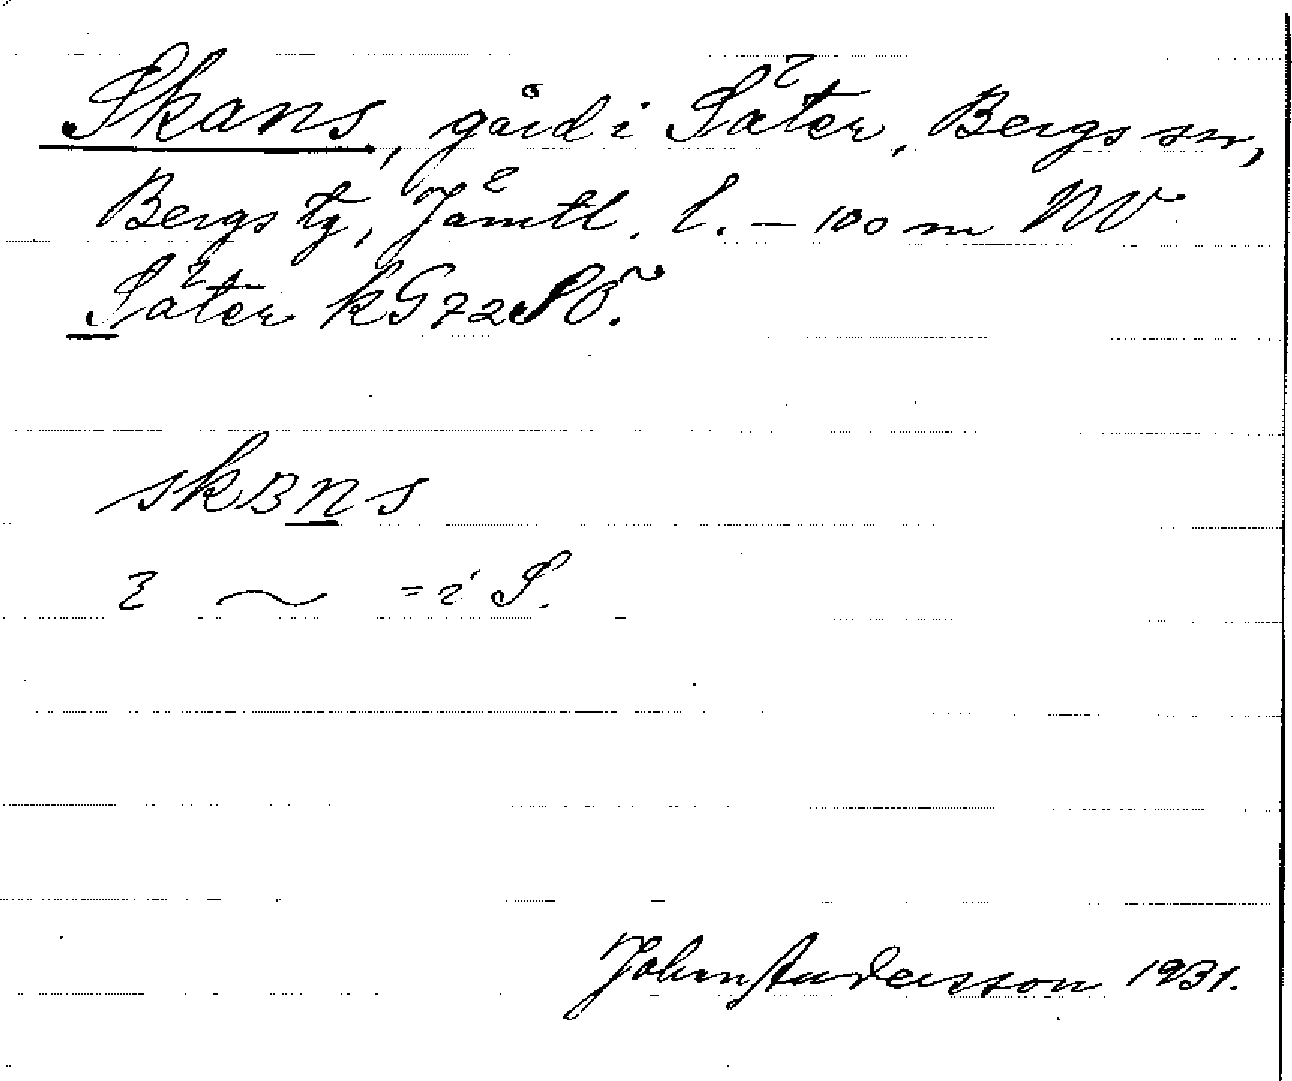 Skans, gård i Säter, Bergs sn,
Bergs tg, Jämtl. l. – 100 m NV
Säter kG72SÖ.
skans
2 ~ = i S.
John Andersson 1931.